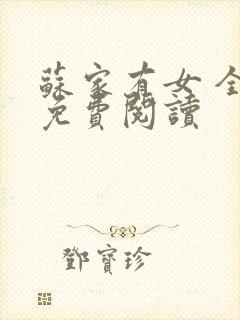 蘇家有女 全
免費閱讀
鄧寶珍